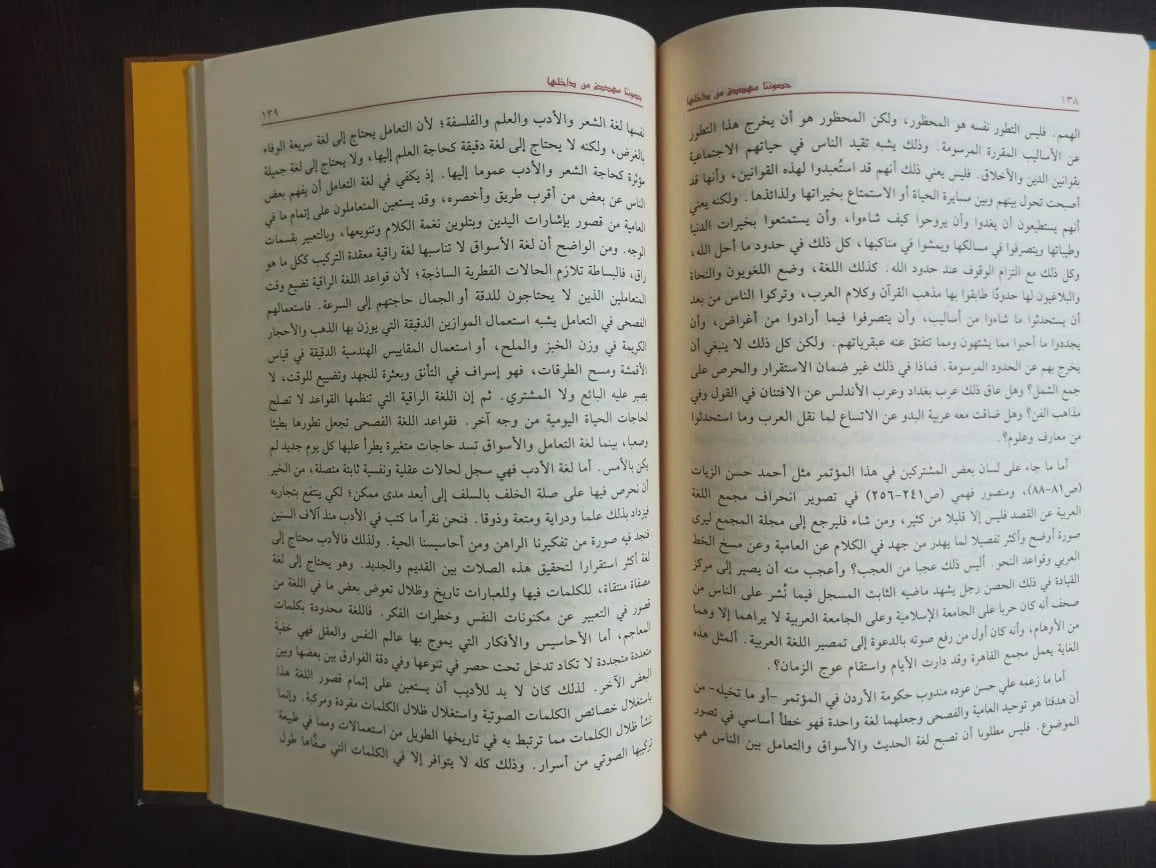 حصوننا مهددة من داخلها
١٣٨
الهمم. فليس التطور نفسه هو المحظور، ولكن المحظور هو أن يخرج هذا التطور
عن الأساليب المقررة المرسومة. وذلك يشبه تقيد الناس في حياتهم الاجتماعية
بقوانين الدين والأخلاق. فليس يعني ذلك أنهم قد استُعبدوا لهذه القوانين، وأنها قد
أصبحت تحول بينهم وبين مسايرة الحياة أو الاستمتاع بخيراتها ولذائذها. ولكنه يعني
أنهم يستطيعون أن يغدوا وأن يروحوا كيف شاءوا، وأن يستمتعوا بخيرات الدنيا
وطيباتها ويتصرفوا في مسالكها ويمشوا في مناكبها، كل ذلك في حدود ما أحل الله،
وكل ذلك مع التزام الوقوف عند حدود الله. كذلك اللغة، وضع اللغويون والنحاة
والبلاغيون لها حدودًا طابقوا بها مذهب القرآن وكلام العرب، وتركوا الناس من بعد
أن يستحدثوا ما شاءوا من أساليب، وأن يتصرفوا فيما أرادوا من أغراض، وأن
يجددوا ما أحبوا مما يشتهون ومما تتفتق عنه عبقرياتهم. ولكن كل ذلك لا ينبغي أن
يخرج بهم عن الحدود المرسومة. فماذا في ذلك غير ضمان الاستقرار والحرص على
جمع الشمل؟ وهل عاق ذلك عرب بغداد وعرب الأندلس عن الافتنان في القول وفي
مذاهب الفن؟ وهل ضاقت معه عربية البدو عن الاتساع لما نقل العرب وما استحدثوا
من معارف وعلوم؟.
أما ما جاء على لسان بعض المشتركين في هذا المؤتمر مثل أحمد حسن الزيات
(ص٨١-٨٨)، ومنصور فهمي (ص٢٤١-٢٥٦) في تصوير انحراف مجمع اللغة
العربية عن القصد فليس إلا قليلا من كثير، ومن شاء فليرجع إلى مجلة المجمع ليرى
صورة أوضح وأكثر تفصيلا لما يهدر من جهد في الكلام عن العامية وعن مسخ الخط
العربي وقواعد النحو. أليس ذلك عجبا من العجب؟ وأعجب منه أن يصير إلى مركز
القيادة في ذلك الحصن رجل يشهد ماضيه الثابت المسجل فيما نُشر على الناس من
صحف أنه كان حربا على الجامعة الإسلامية وعلى الجامعة العربية لا يراهما إلا وهما
من الأوهام، وأنه كان أول من رفع صوته بالدعوة إلى تمصير اللغة العربية. ألمثل هذه
الغاية يعمل مجمع القاهرة وقد دارت الأيام واستقام عوج الزمان؟.
أما ما زعمه علي حسن عوده مندوب حكومة الأردن في المؤتمر -أو ما تخيله- من
أن هدفنا هو توحيد العامية والفصحى وجعلهما لغة واحدة فهو خطأ أساسي في تصور
الموضوع. فليس مطلوبا أن تصبح لغة الحديث والأسواق والتعامل بين الناس هي
حصوننا مهددة من داخلها
١٣٩
نفسها لغة الشعر والأدب والعلم والفلسفة؛ لأن التعامل يحتاج إلى لغة سريعة الوفاء
بالغرض، ولكنه لا يحتاج إلى لغة دقيقة كحاجة العلم إليها، ولا يحتاج إلى لغة جميلة
مؤثرة كحاجة الشعر والأدب عموما إليها. إذ يكفي في لغة التعامل أن يفهم بعض
الناس عن بعض من أقرب طريق وأخصره، وقد يستعين المتعاملون على إتمام ما في
العامية من قصور بإشارات اليدين وبتلوين نغمة الكلام وتنويعها، وبالتعبير بقسمات
الوجه. ومن الواضح أن لغة الأسواق لا تناسبها لغة راقية معقدة التركيب ككل ما هو
راق، فالبساطة تلازم الحالات الفطرية الساذجة؛ لأن قواعد اللغة الراقية تضيع وقت
المتعاملين الذين لا يحتاجون للدقة أو الجمال حاجتهم إلى السرعة. فاستعمالهم
الفصحى في التعامل يشبه استعمال الموازين الدقيقة التي يوزن بها الذهب والأحجار
الكريمة في وزن الخبز والملح، أو استعمال المقاييس الهندسية الدقيقة في قياس
الأقمشة ومسح الطرقات، فهو إسراف في التأنق وبعثرة للجهد وتضييع للوقت، لا
يصبر عليه البائع ولا المشتري. ثم إن اللغة الراقية التي تنظمها القواعد لا تصلح
لحاجات الحياة اليومية من وجه آخر. فقواعد اللغة الفصحى تجعل تطورها بطيئا
وصعبا، بينما لغة التعامل والأسواق تسد حاجات متغيرة يطرأ عليها كل يوم جديد لم
يكن بالأمس. أما لغة الأدب فهي سجل لحالات عقلية ونفسية ثابتة متصلة، من الخير
أن نحرص فيها على صلة الخلف بالسلف إلى أبعد مدى ممكن؛ لكي ينتفع بتجاربه
فيزداد بذلك علما ودراية ومتعة وذوقا. فنحن نقرأ ما كتب في الأدب منذ آلاف السنين
فنجد فيه صورة من تفكيرنا الراهن ومن أحاسيسنا الحية. ولذلك فالأدب محتاج إلى
لغة أكثر استقرارا لتحقيق هذه الصلات بين القديم والجديد. وهو يحتاج إلى لغة
مصفاة منتقاة، للكلمات فيها وللعبارات تاريخ وظلال تعوض بعض ما في اللغة من
قصور في التعبير عن مكنونات النفس وخطرات الفكر. فاللغة محدودة بكلمات
المعاجم، أما الأحاسيس والأفكار التي يموج بها عالم النفس والعقل فهي خفية
متعددة متجددة لا تكاد تدخل تحت حصر في تنوعها وفي دقة الفوارق بين بعضها وبين
البعض الآخر. لذلك كان لا بد للأديب أن يستعين على إتمام قصور اللغة هذا
باستغلال خصائص الكلمات الصوتية واستغلال ظلال الكلمات مفردة ومركبة. وإنما
تنشأ ظلال الكلمات مما ترتبط به في تاريخها الطويل من استعمالات ومما في طبيعة
تركيبها الصوتي من أسرار. وذلك كله لا يتوافر إلا في الكلمات التي صفّاها طول